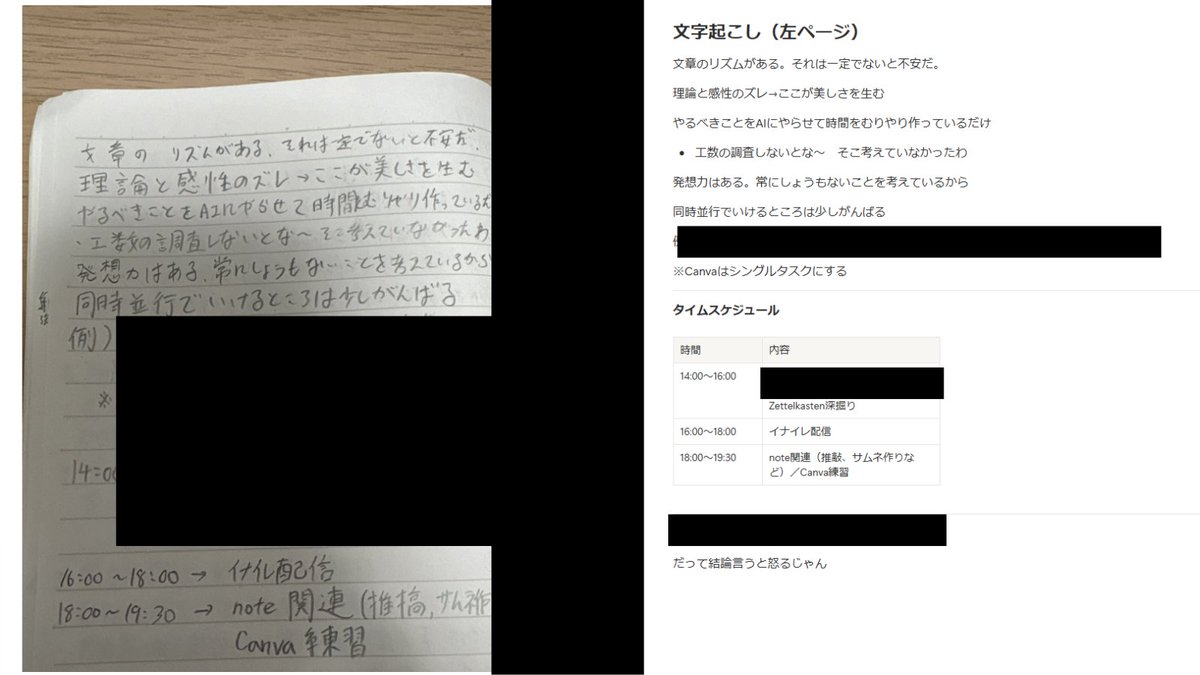 文章の リズムがある、それは一定でないと不安だ、
理論と感性のズレ→ここが美しさを生む
やるべきことをAIにやらせて時間むりやり作っているだ
・工数の調査しないとな〜 そこ考えていなかったわ
発想力はある、常にしょうもないことを考えているから
同時並行でいけるところは少しがんばる
例)
※
14:00
16:00〜18:00 → イナイレ配信
18:00〜19:30 → note 関連(推敲,サムネ作
Canva 練習
文字起こし（左ページ）
文章のリズムがある。それは一定でないと不安だ。
理論と感性のズレ→ここが美しさを生む
やるべきことをAIにやらせて時間をむりやり作っているだけ
• 工数の調査しないとな〜　そこ考えていなかったわ
発想力はある。常にしょうもないことを考えているから
同時並行でいけるところは少しがんばる
※Canvaはシングルタスクにする
タイムスケジュール
時間 内容
14:00〜16:00
Zettelkasten深掘り
16:00〜18:00 イナイレ配信
18:00〜19:30 note関連（推敲、サムネ作りな
ど）／Canva練習
だって結論言うと怒るじゃん